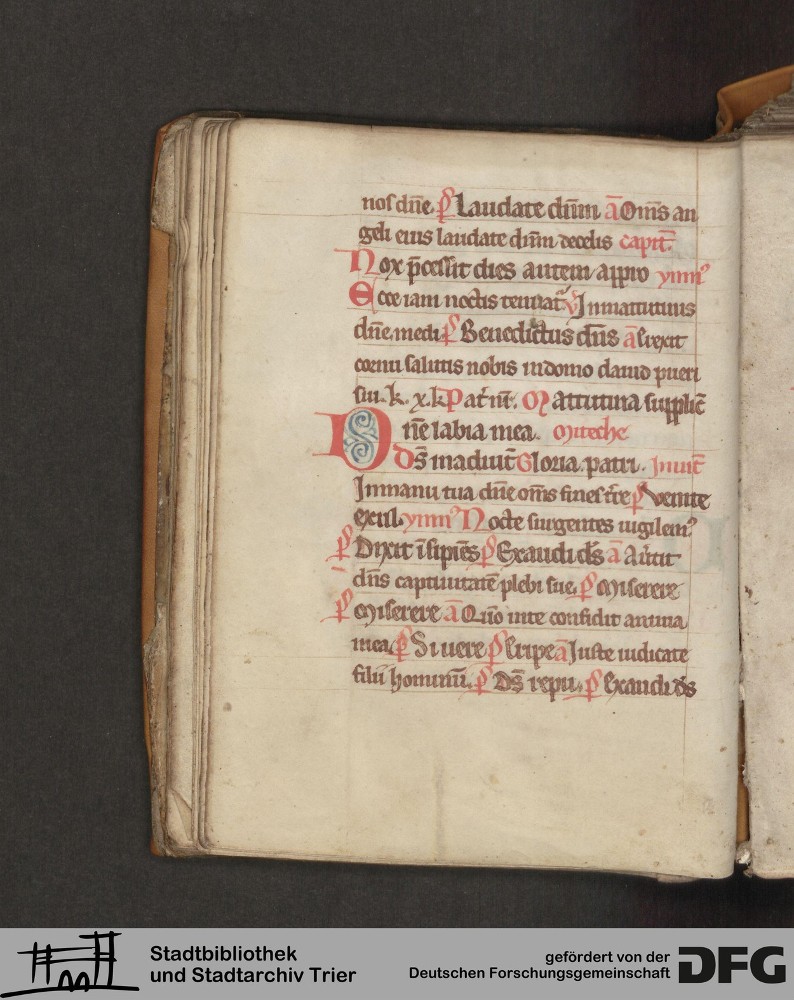 nos dn̄e. p̄s Laudate dn̄m ā Om̄s an
geli eius laudate dn̄m de celis capit̄.
Nox p̄cessit dies autem appro ymn⁹
Ecce iam noctis tenuat̉ v̄ In matutinis
dn̄e. medi p̄s Benedictus dn̄s ā Erexit
cornu salutis nobis in domo dauid pueri
sui. k. x. k Pat̉ nr̄. Mattutina supplic̄
Dn̄e labia mea. Miteche
Ds̄ in adiut̄ Gloria. patri. Inuit̄
In manu tua dn̄e om̄s fines tr̄e p̄s Venite
exul. ymn⁹ Nocte surgentes uigilem⁹
p̄s Dixit īsipiēs p̄s Exaudi ds̄ ā Aủtit
dn̄s captiuitatē plebi sue. p̄s Miserere
p̄s Miserere ā Qn̄o in te confidit anima
mea p̄s Si uere p̄s Eripe ā Juste iudicate
filii hominū. p̄s Ds̄ repu. p̄s Exaudi ds̄
Stadtbibliothek
und Stadtarchiv Trier
gefördert von der
Deutschen Forschungsgemeinschaft DFG